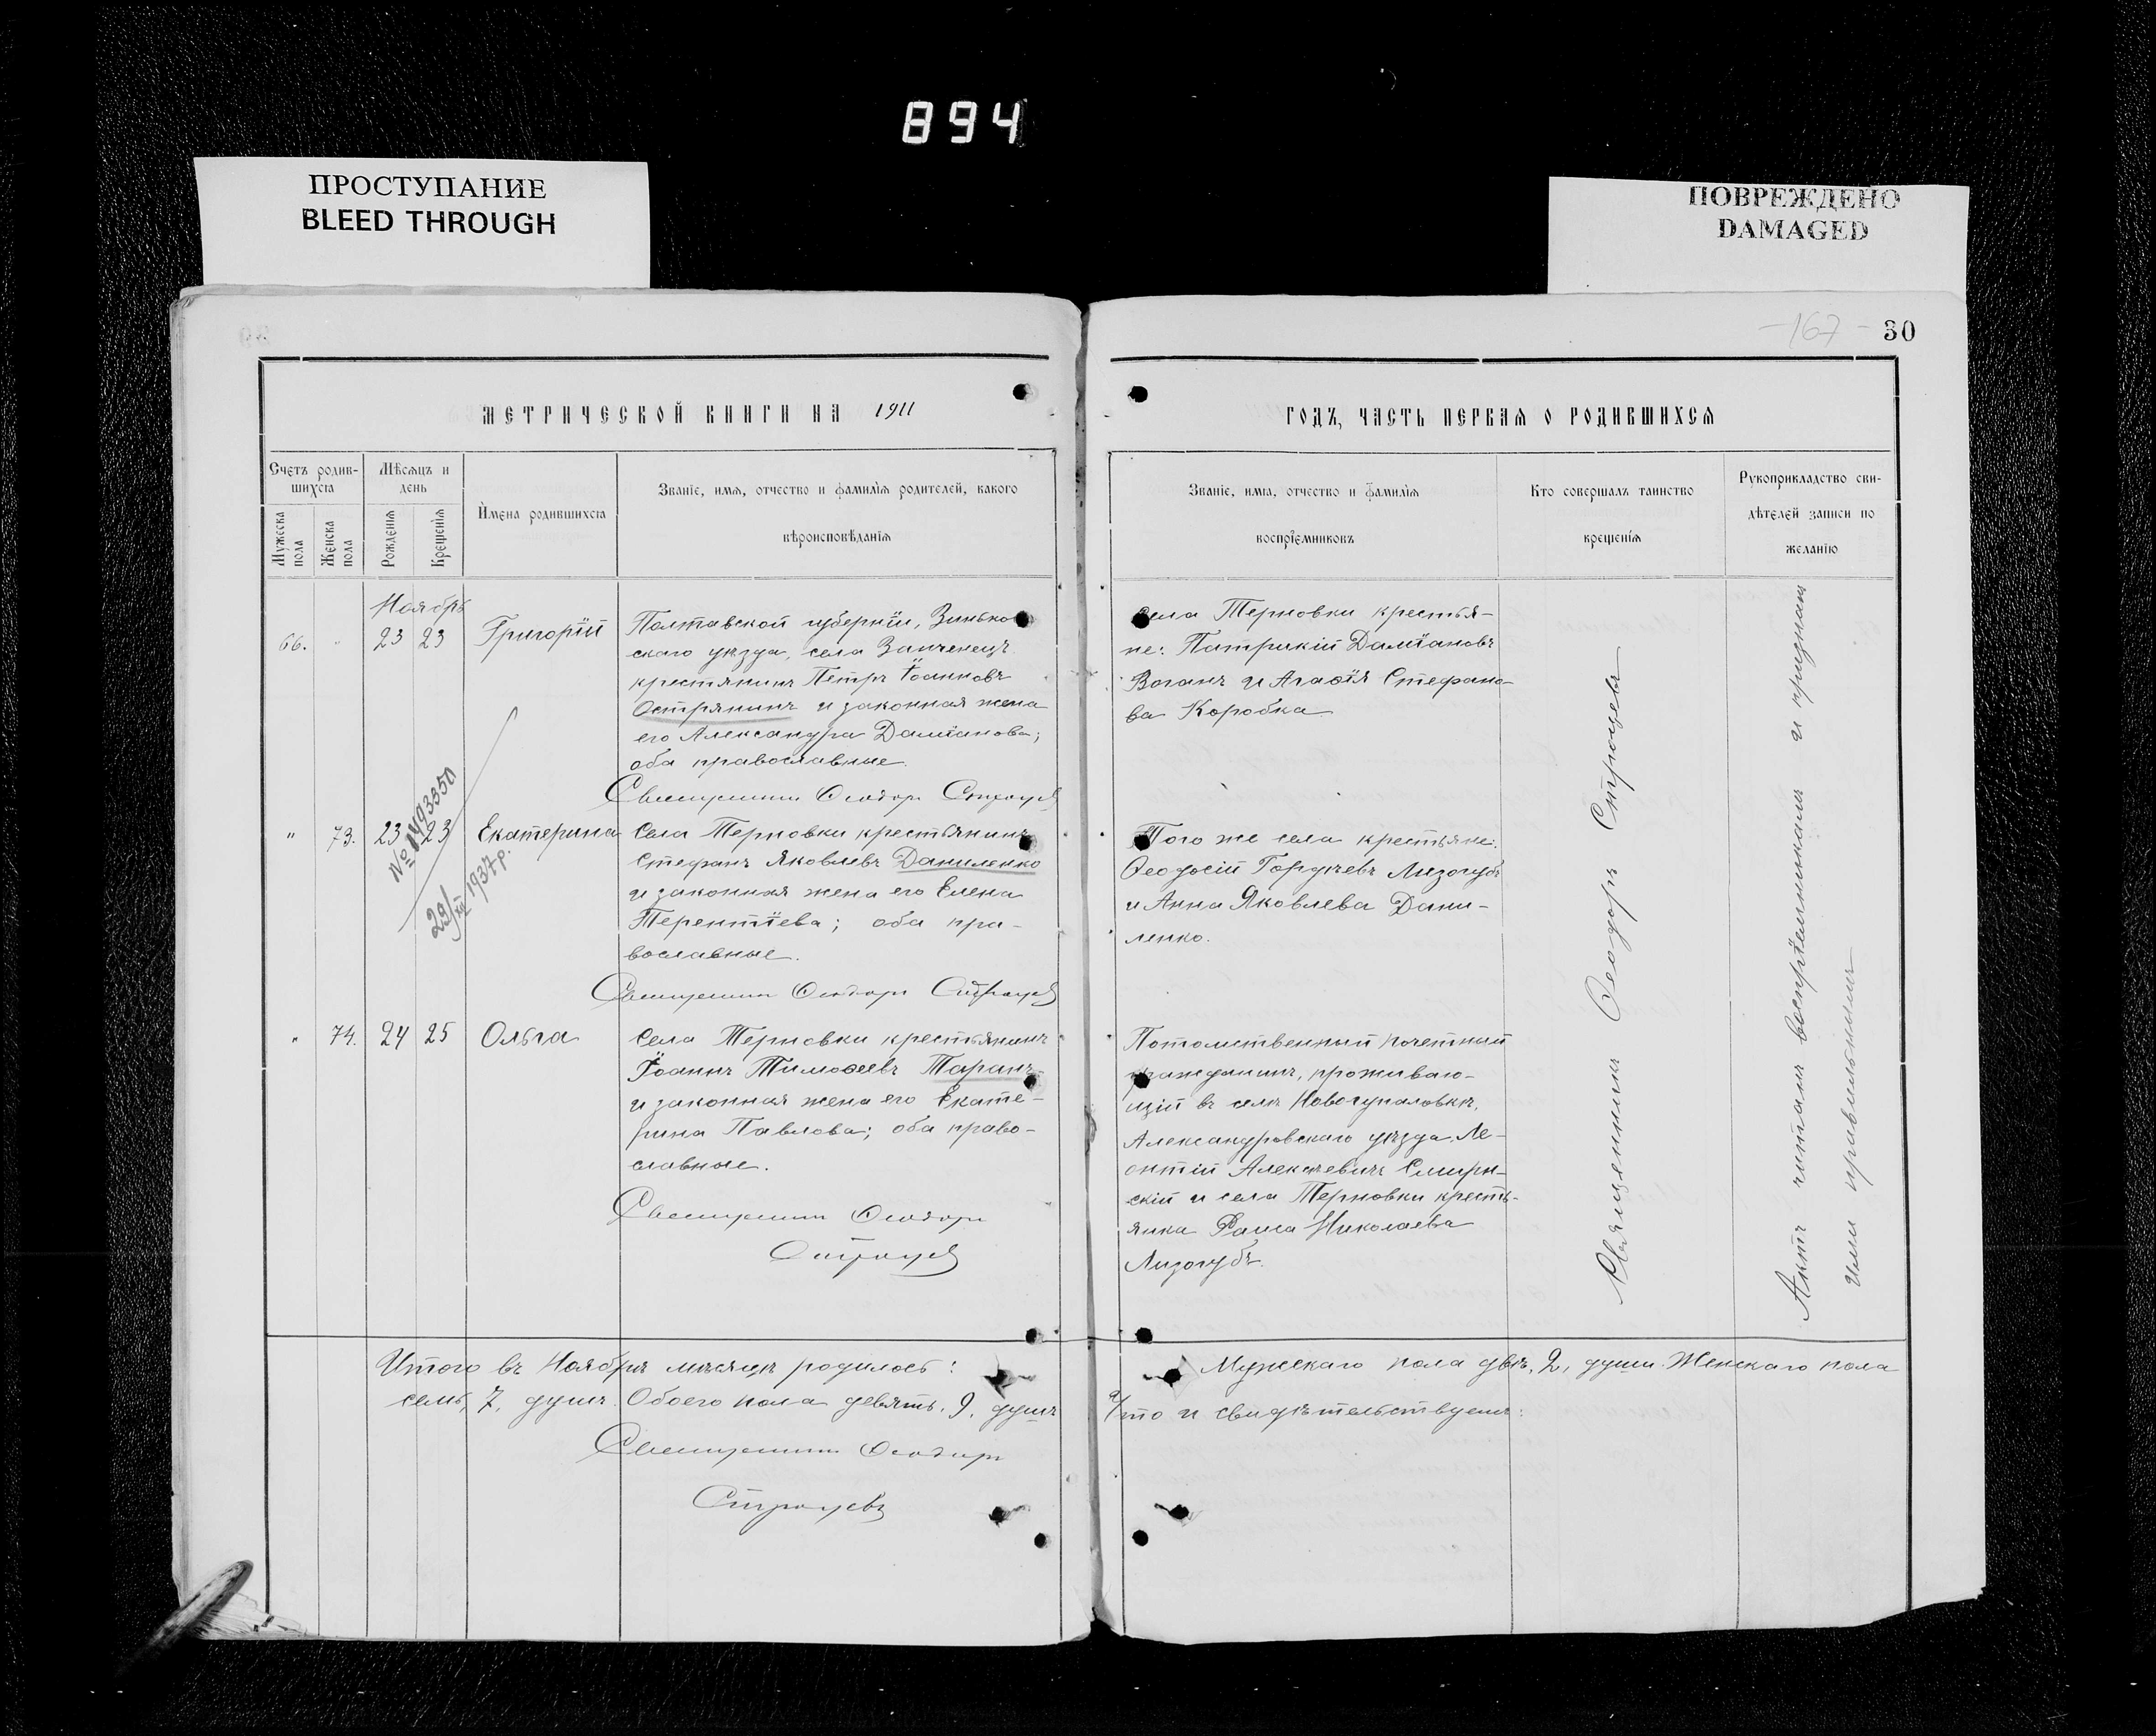 894
ПРОСТУПАНИЕ
BLEED THROUGH
ПОВРЕЖДЕНО
DAMAGED
-167-
30
МЕТРИЧЕСКОЙ КНИГИ НА 1911
ГОДЪ, ЧАСТЬ ПЕРВАЯ О РОДИВШИХСЯ
Счетъ родив-
шихся
Мѣсяцъ и
день
Мужеска
пола
Женска
пола
Рожденія
Крещенія
Имена родившихся
Званіе, имя, отчество и фамилія родителей, какого
вѣроисповѣданія
Званіе, имя, отчество и фамилія
воспріемниковъ
Кто совершалъ таинство
крещенія
Рукоприкладство сви-
дѣтелей записи по
желанію
Ноябрь
66. " 23 23 Григорій
Полтавской губерніи, Зинько
скаго уѣзда, села
крестьянинъ Петръ Іоанновъ
Острянинъ и законная жена
его Александра Даміанова;
оба православные.
Священникъ Ѳеодоръ Строцевъ
Села Терновки крестья-
не: Патрикій Даміановъ
Воганъ и Агаѳія Стефано-
ва Коробка
" 73. 23 23 Екатерина
№ 1493350
29/XII 1937 р.
Села Терновки крестьянинъ
Стефанъ Яковлевъ Даниленко
и законная жена его Елена
Терентіева; оба пра-
вославные.
Священникъ Ѳеодоръ Строцевъ
Того же села крестьяне:
Ѳеодосій Гордѣевъ Лизогубъ
и Анна Яковлева Дани-
ленко.
" 74. 24 25 Ольга
Села Терновки крестьянинъ
Іоаннъ Тимоѳеевъ Таранъ
и законная жена его Екате-
рина Павлова; оба право-
славные.
Священникъ Ѳеодоръ
Строцевъ
Потомственный почетный
гражданинъ, проживаю-
щій въ селѣ Новогупаловкѣ,
Александровскаго уѣзда, Ле-
онтій Алексѣевичъ Смирн-
скій и села Терновки кресть-
янка Раиса Николаева
Лизогубъ.
Священникъ Ѳеодоръ Строцевъ
Актъ читалъ воспріемникамъ и признанъ
ими правильнымъ
Итого въ Ноябрѣ мѣсяцѣ родилось:
Мужескаго пола двѣ, 2, души. Женскаго пола
семь, 7, душъ. Обоего пола девять, 9, душъ
Что и свидѣтельствуемъ:
Священникъ Ѳеодоръ
Строцевъ